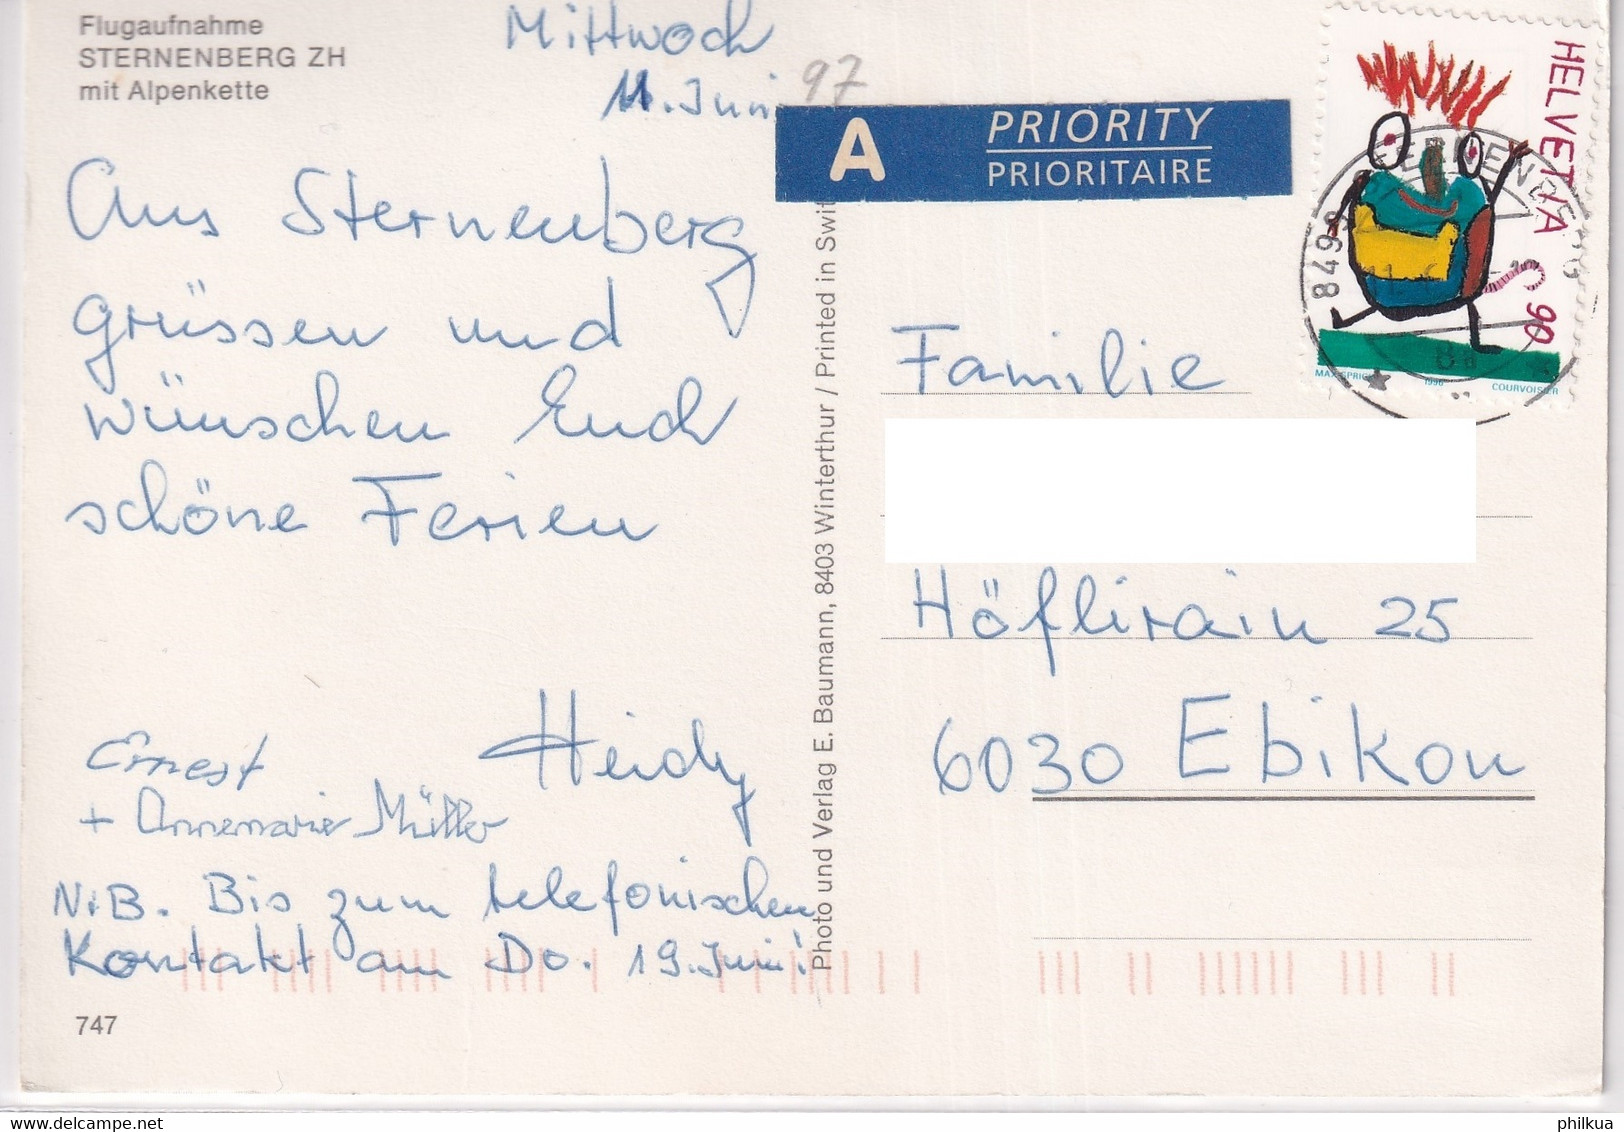 Flugaufnahme
STERNENBERG ZH
mit Alpenkette
Mittwoch
11. Juni 97
Aus Sternenberg
grüssen und
wünschen Euch
schöne Ferien
Heidy
Ernest
+ Annemarie Müller
N.B. Bis zum telefonischen
Kontakt am Do. 19. Juni!
747
Photo und Verlag E. Baumann, 8403 Winterthur / Printed in Swit
A PRIORITY
PRIORITAIRE
HELVETIA
90
1996
COURVOISIER
Familie
Höflirain 25
6030 Ebikon
www.delcampe.net
philkua